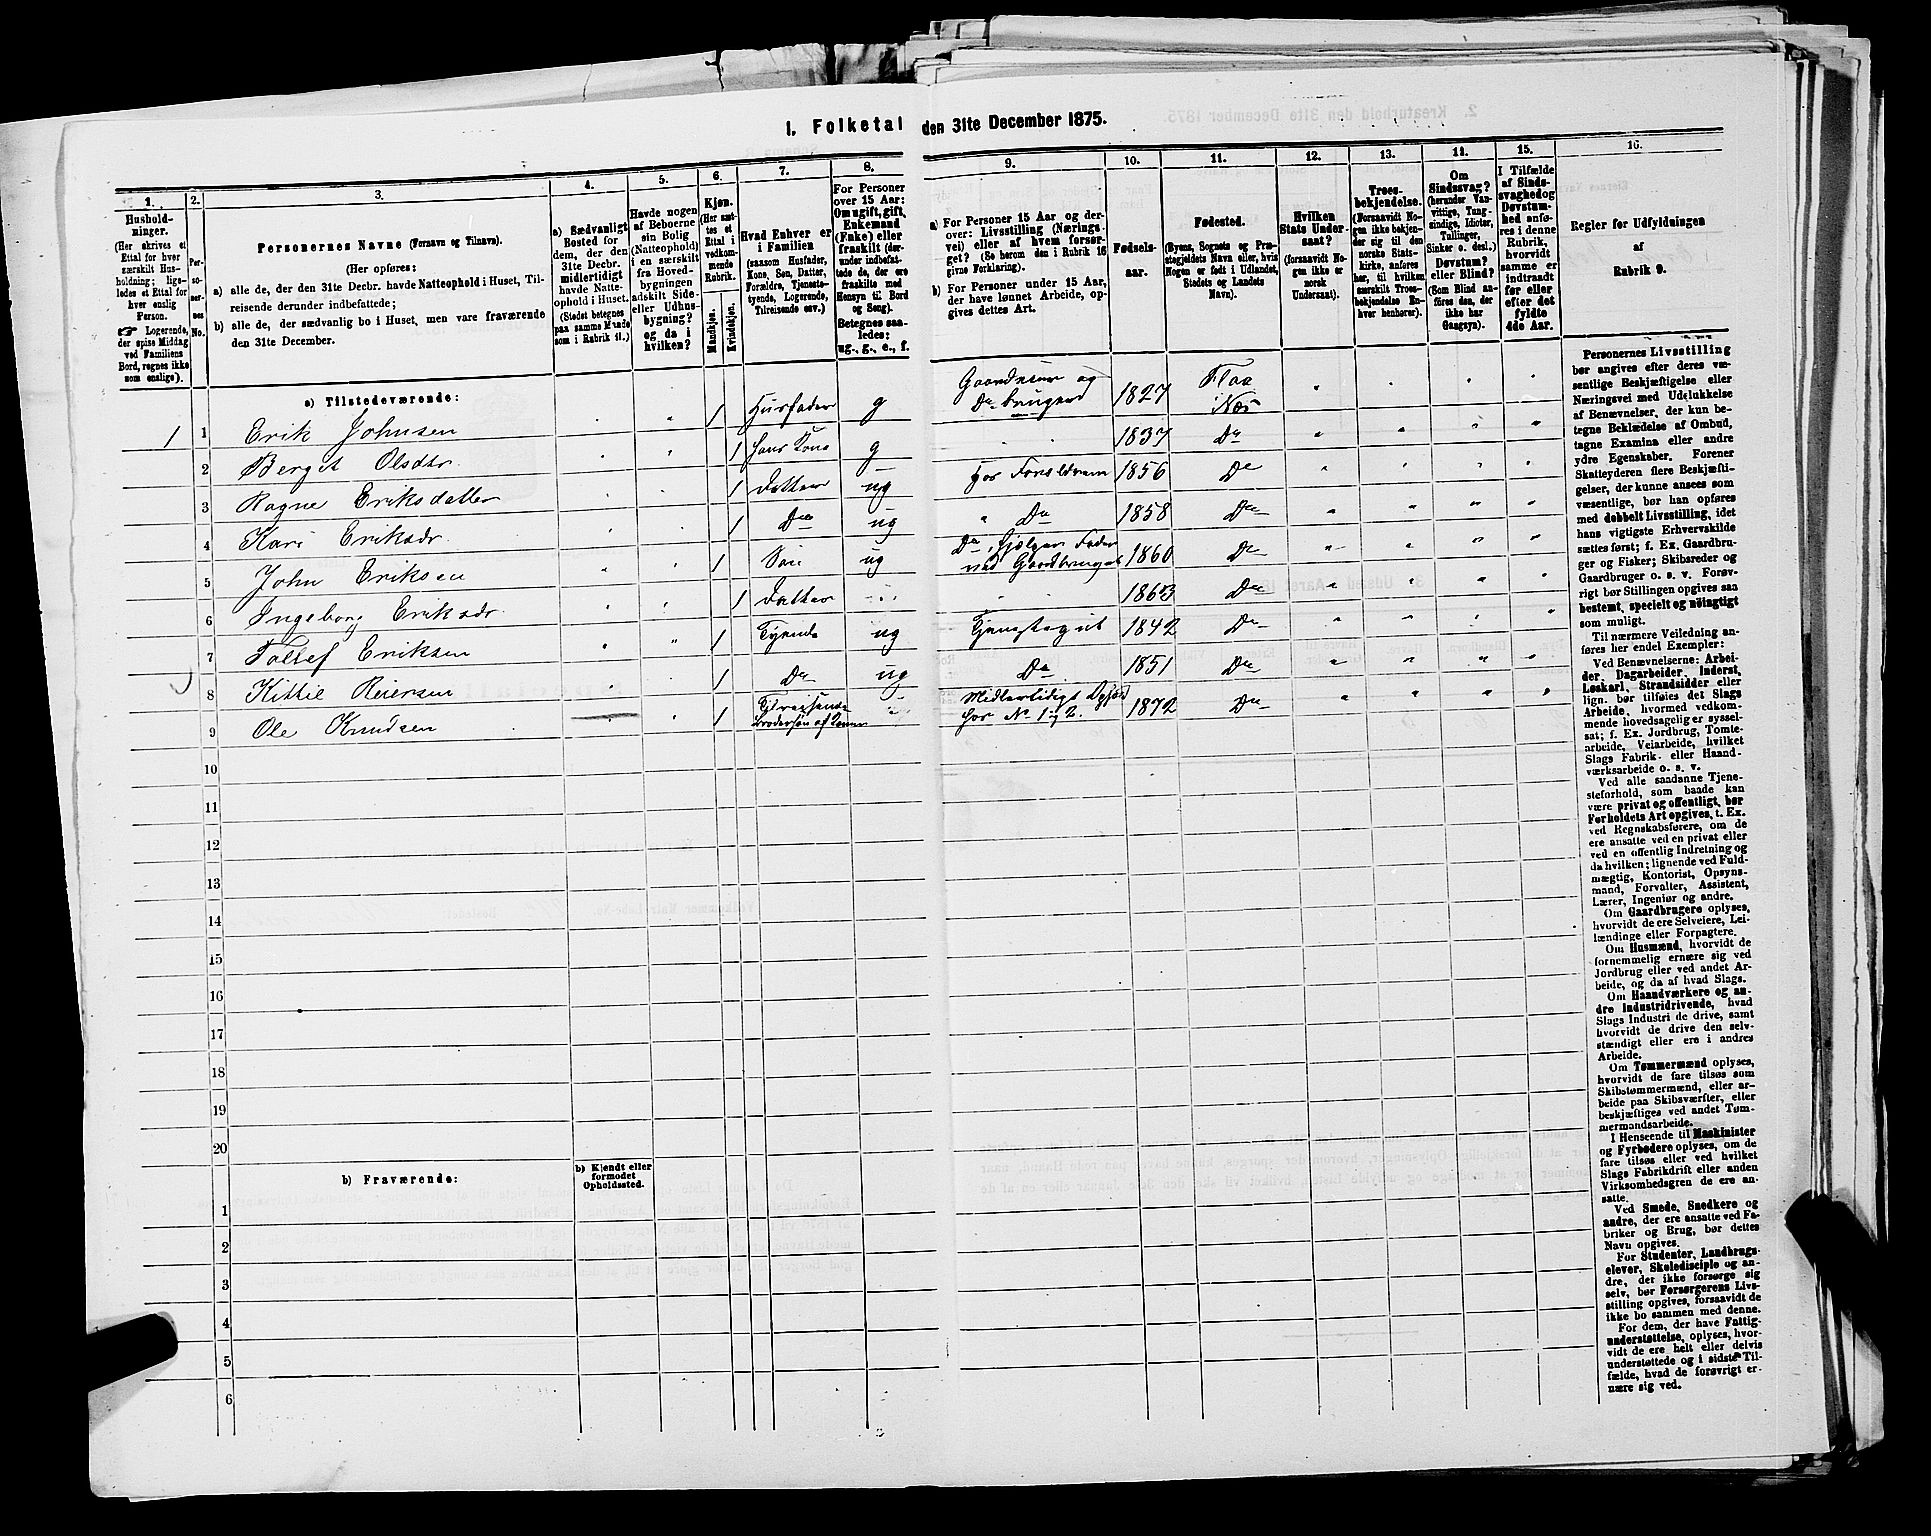 I. Folketal den 31te December 1875.
1.
Hushold-
ninger.
(Her skrives et
Ettal for hver
særskilt Hus-
holdning; lige-
ledes et Ettal for
hver enslig
Person.
☞ Logerende,
der spise Middag
ved Familiens
Bord, regnes ikke
som enslige).
2.
Per-
so-
ner-
nes
No.
3.
Personernes Navne (Fornavn og Tilnavn).
(Her opføres:
a) alle de, der den 31te Decbr. havde Natteophold i Huset, Til-
reisende derunder indbefattede;
b) alle de, der sædvanlig bo i Huset, men vare fraværende
den 31te December.
4.
a) Sædvanligt
Bosted for
dem, der den
31te Decbr.
midlertidigt
havde Natte-
ophold i Huset.
(Stedet betegnes
paa samme Maade
som i Rubrik 11.)
5.
Havde nogen
af Beboerne
sin Bolig
(Natteophold)
i en særskilt
fra Hoved-
bygningen
adskilt Side-
eller Udhus-
bygning?
og da i
hvilken?
6.
Kjøn.
(Her sæt-
tes et
Ettal i
vedkom-
mende
Rubrik.)
Mandkjøn.
Kvindekjøn.
7.
Hvad Enhver er
i Familien
(saasom Husfader,
Kone, Søn, Datter,
Forældre, Tjeneste-
tyende, Logerende,
Tilreisende osv.)
8.
For Personer
over 15 Aar:
Om ugift, gift,
Enkemand
(Enke) eller
fraskilt (der-
under indbefat-
tede de, der ere
fraskilte med
Hensyn til Bord
og Seng).
Betegnes saa-
ledes:
ug., g., e., f.
9.
a) For Personer 15 Aar og der-
over: Livsstilling (Nærings-
vei) eller af hvem forsør-
get? (Se herom den i Rubrik 16
givne Forklaring).
b) For Personer under 15 Aar,
der have lønnet Arbeide, op-
gives dettes Art.
10.
Fødsels-
aar.
11.
Fødested.
(Byens, Sognets og Præ-
stegjeldets Navn eller, hvis
Nogen er født i Udlandet,
Stedets og Landets
Navn).
12.
Hvilken
Stats Under-
saat?
(forsaavidt No-
gen ikke er
norsk
Undersaat).
13.
Troes-
bekjendelse.
(Forsaavidt No-
gen ikke bekjen-
der sig til den
norske Stats-
kirke, anføres
her, til hvilken
særskilt Troes-
bekjendelse En-
hver henhører).
14.
Om
Sindssvag?
(herunder Van-
vittige, Tung-
sindige, Idioter,
Tullinger,
Sinker o. desl.)
Døvstum?
eller Blind?
(Som Blind an-
føres den, der
ikke har
Gangsyn).
15.
I Tilfælde
af Sinds-
svaghed og
Døvstum-
hed anfø-
res i denne
Rubrik,
hvorvidt
samme er
indtraadt
før eller
efter det
fyldte
4de Aar.
16.
Regler for Udfyldningen
af
Rubrik 9.
a) Tilstedeværende:
1 1 Erik Johnsen 1 Husfader g Gaardeier og Do bruger 1827 Flaa Næs
2 Bergit Olsdtr 1 Hans Kone g 1837 Do
3 Ragne Eriksdatter 1 Datter ug hos Forældrene 1856 Do
4 Kari Eriksdr 1 Do ug Do 1858 Do
5 John Eriksen 1 Søn ug Do, Hjelper Fader ved Gaardbruget 1860 Do
6 Ingeborg Eriksdr 1 Datter 1863 Do
7 Tollef Eriksen 1 Tyende ug Tjenstegut 1842 Do
8 Kittil Reiersen 1 Do ug Do 1851 Do
9 Ole Knudsen 1 Tilreisende Brodersøn af Konen Midlertidigt hos No 1 og 2. 1872 Do
10
11
12
13
14
15
16
17
18
19
20
b) Fraværende:
b) Kjendt eller
formodet
Opholdssted.
1
2
3
4
5
6
Personernes Livsstilling
bør angives efter deres væ-
sentlige Beskjæftigelse eller
Næringsvei med Udelukkelse
af Benævnelser, der kun be-
tegne Beklædelse af Ombud,
tagne Examina eller andre
ydre Egenskaber. Forener
Skatteyderen flere Beskjæfti-
gelser, der kunne ansees som
væsentlige, bør han opføres
med dobbelt Livsstilling, idet
hans vigtigste Erhvervskilde
sættes først; f. Ex. Gaardbru-
ger og Fisker; Skibsreder og
Gaardbruger o. s. v. Forøv-
rigt bør Stillingen opgives saa
bestemt, specielt og nöiagtigt
som muligt.
Til nærmere Veiledning an-
føres her endel Exempler:
Ved Benævnelserne: Arbei-
der, Dagarbeider, Inderst,
Løskarl, Strandsidder eller
lign. bør tilføies det Slags
Arbeide, hvormed vedkom-
mende hovedsagelig er syssel-
sat; f. Ex. Jordbrug, Tomte-
arbeide, Veiarbeide, hvilket
Slags Fabrik- eller Haand-
værksarbeide o. s. v.
Ved alle saadanne Tjene-
steforhold, som baade kan
være privat og offentligt, bør
Forholdets Art opgives, t. Ex.
ved Regnskabsførere, om de
ere ansatte ved en privat eller
ved en offentlig Indretning og
da hvilken; lignende ved Fuld-
mægtig, Kontorist, Opsyns-
mand, Forvalter, Assistent,
Lærer, Ingeniør og andre.
Om Gaardbrugere oplyses,
hvorvidt de ere Selveiere, Lei-
lændinge eller Forpagtere.
Om Husmænd, hvorvidt de
fornemmelig ernære sig ved
Jordbrug eller ved andet Ar-
beide, og da af hvad Slags.
Om Haandværkere og an-
dre Industridrivende, hvad
Slags Industri de drive, samt
hvorvidt de drive den selv-
stændigt eller ere i andres
Arbeide.
Om Tømmermænd oplyses,
hvorvidt de fare tilsøs som
Skibstømmermænd, eller ar-
beide paa Skibsværfter, eller
beskjæftiges ved andet Tøm-
mermandsarbeide.
I Henseende til Maskinister
og Fyrbødere oplyses, om de
fare tilsøs eller ved hvilket
Slags Fabrikdrift eller anden
Virksomhedsgren de ere an-
satte.
Ved Smede, Snedkere og
andre, der ere ansatte ved Fa-
briker og Brug, bør dettes
Navn opgives.
For Studenter, Landbrugs-
elever, Skoledisciple og an-
dre, der ikke forsørge sig
selv, bør Forsørgerens Livs-
stilling opgives, forsaavidt de
ikke bo sammen med denne.
For dem, der have Fattig-
understøttelse, oplyses, hvor-
vidt de ere helt eller delvis
understøttede og i sidste Til-
fælde, hvad de forøvrigt er-
nære sig ved.